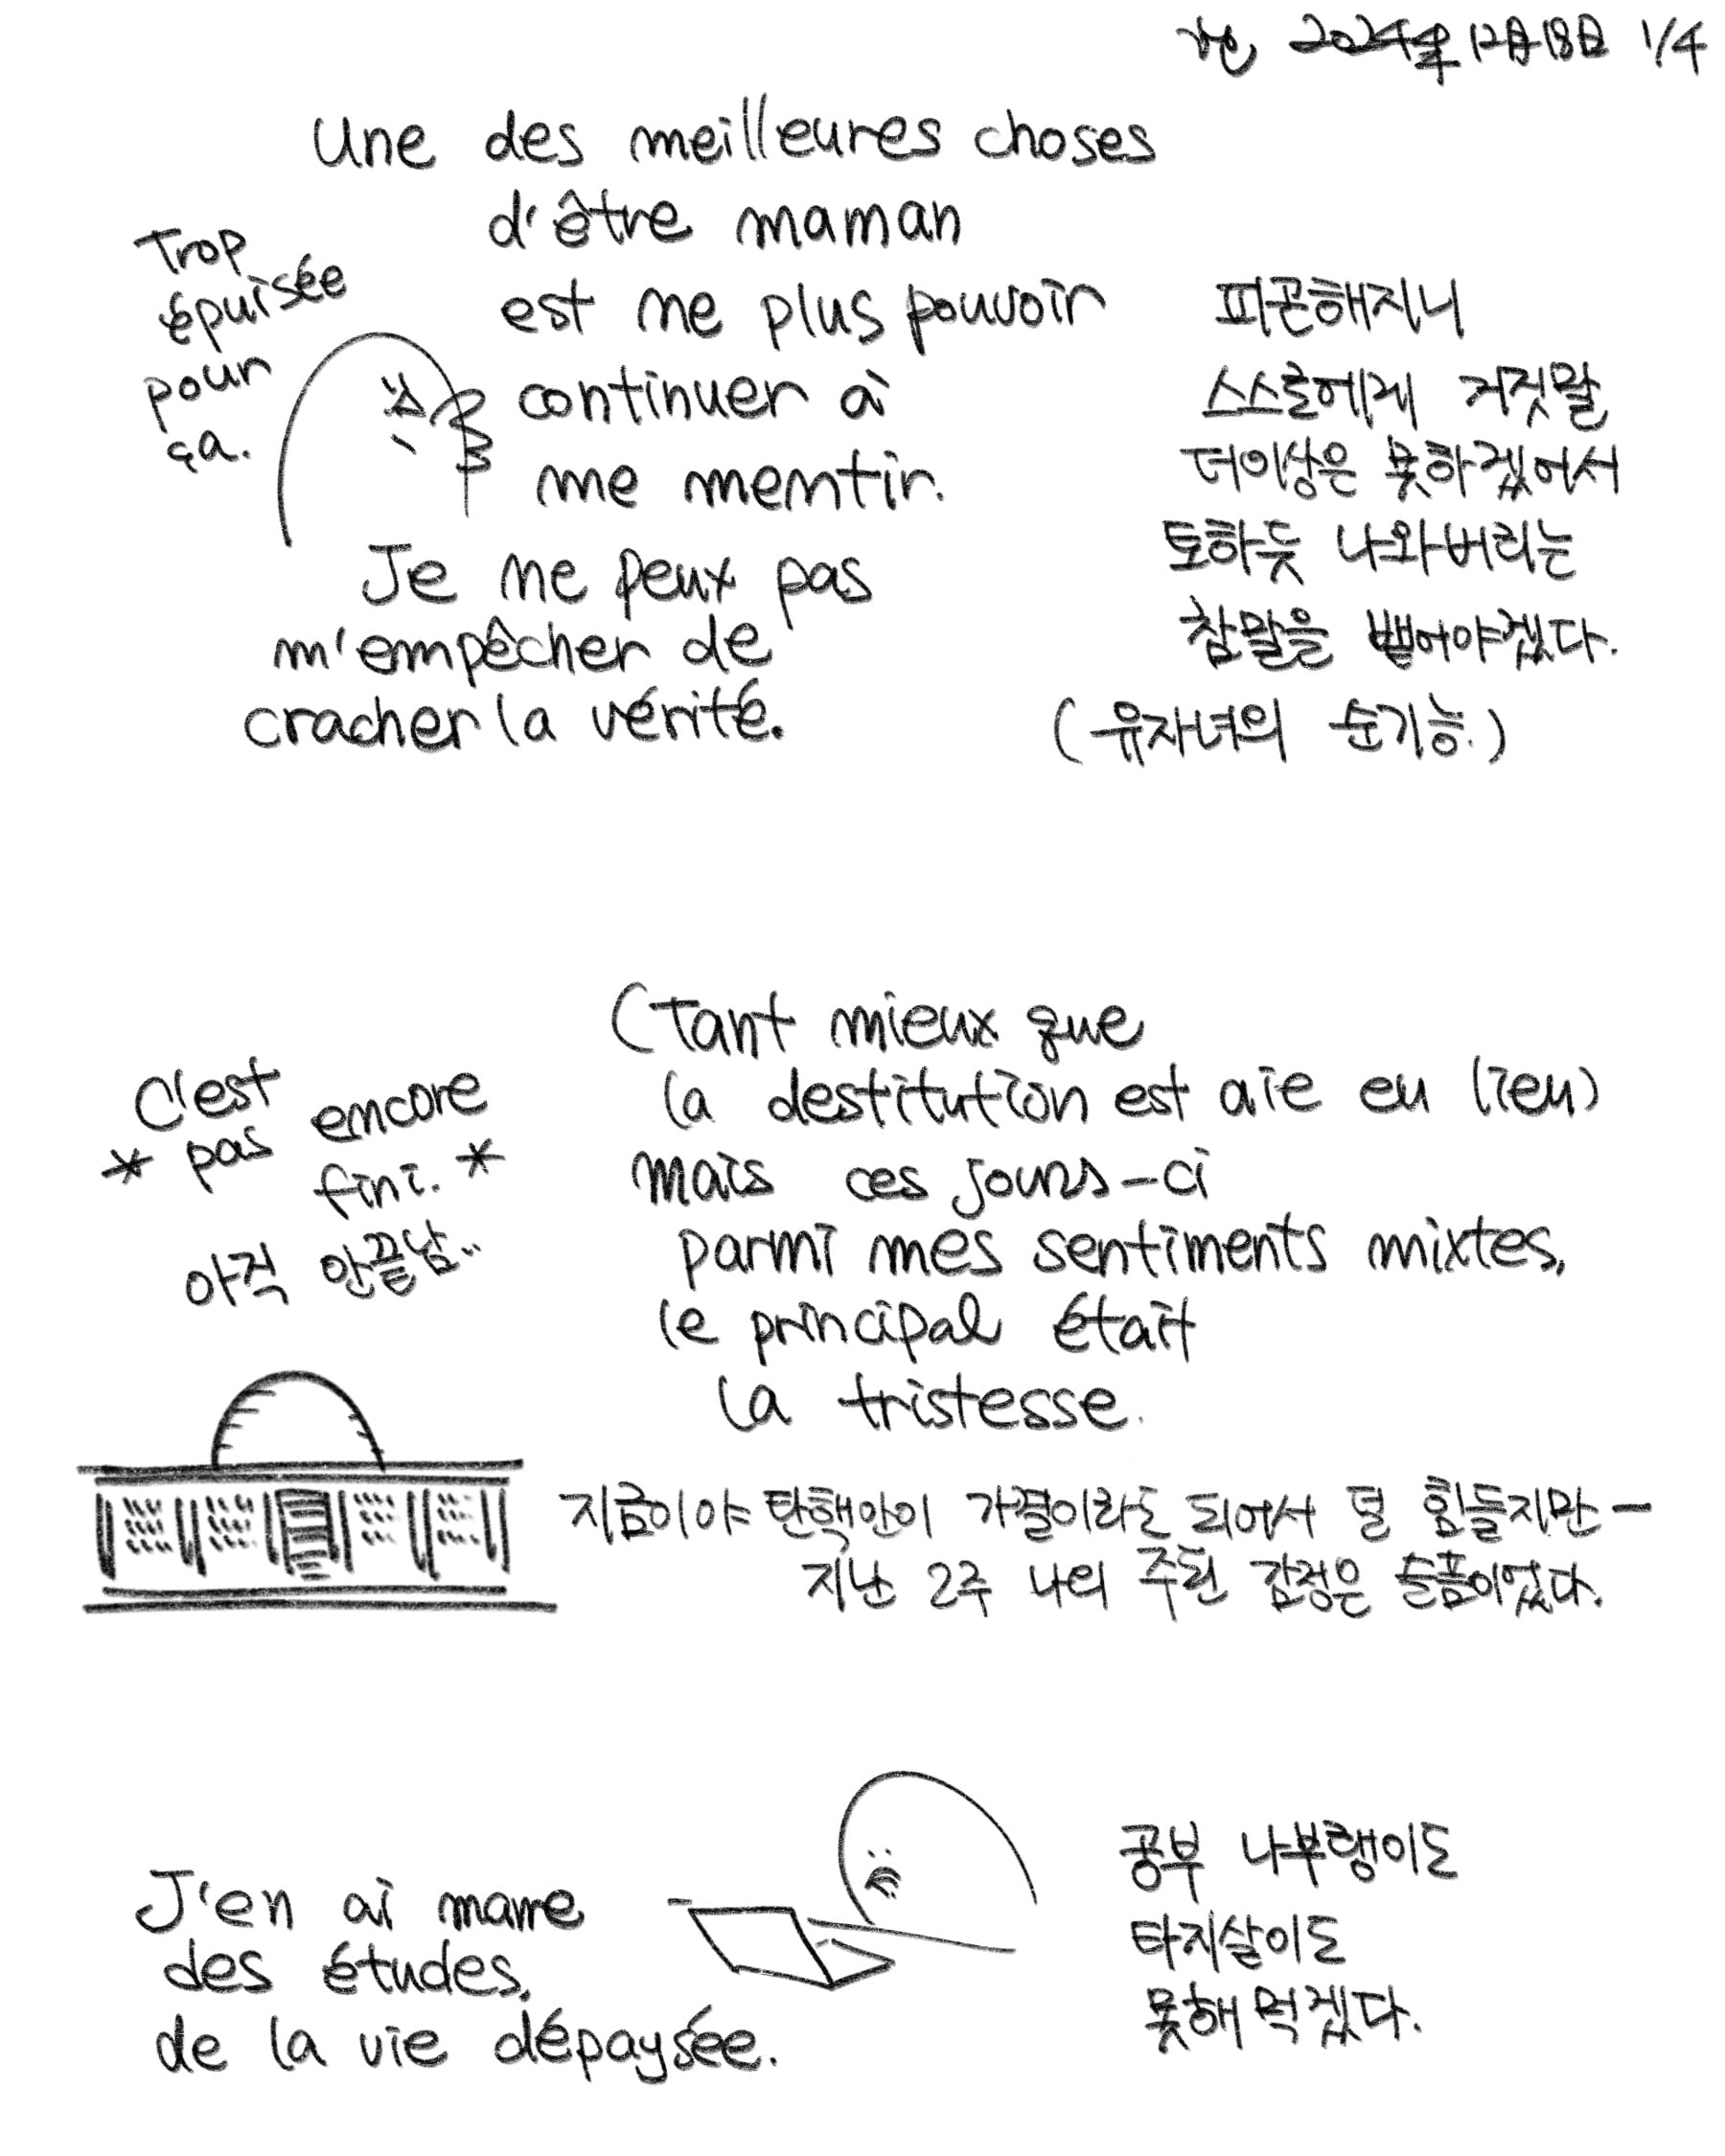 2024年12月18日 1/4
Une des meilleures choses
d'être maman
est ne plus pouvoir
continuer à
me mentir.
Je ne peux pas
m'empêcher de
cracher la vérité.
Trop
épuisée
pour
ça.
피곤해지니
스스로에게 거짓말
더이상은 못하겠어서
토하듯 나와버리는
참말을 뱉어야겠다.
(유자녀의 순기능.)
(Tant mieux que
la destitution est aie eu lieu)
mais ces jours-ci
parmi mes sentiments mixtes,
le principal était
la tristesse.
C'est
* pas encore
fini. *
아직 안끝남..
지금이야 탄핵안이 가결이라도 되어서 덜 힘들지만-
지난 2주 나의 주된 감정은 슬픔이었다.
J'en ai marre
des études,
de la vie dépaysée.
공부 나부랭이도
타지살이도
못해먹겠다.